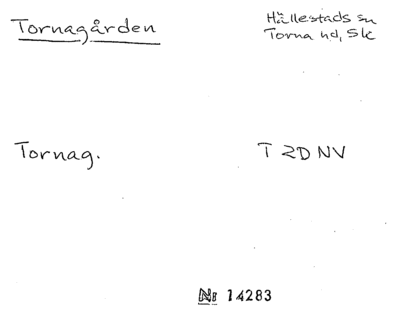 Tornagården
Hällestads sn
Torna hd, Sk
Tornag.
T 2D NV
Nr 14283